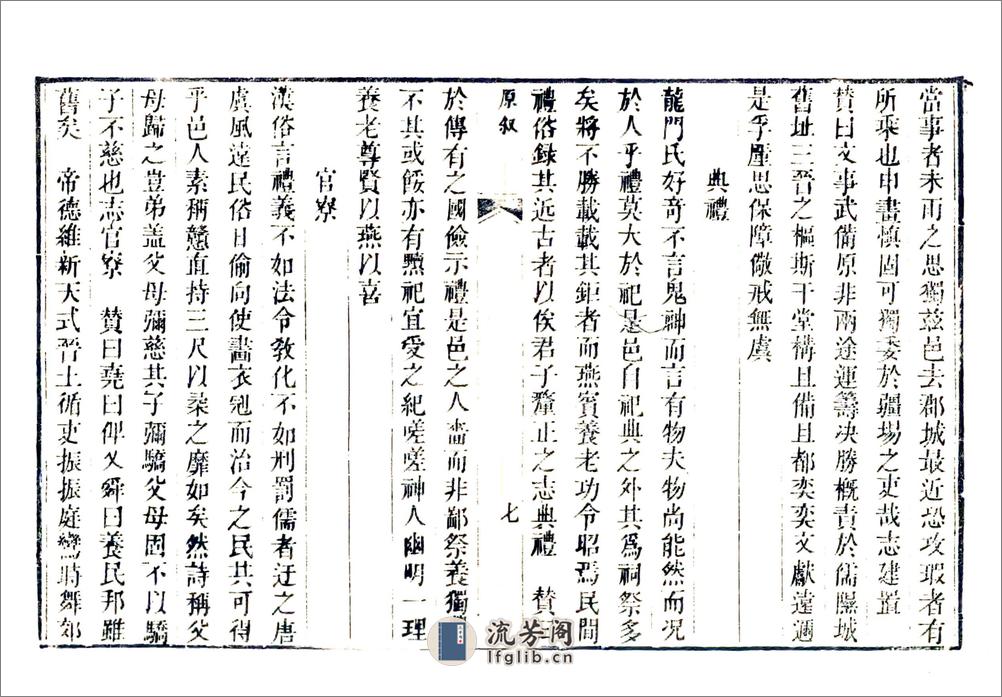 當事者未雨之思獨茲邑去郡城最近恐攻瑕者有
所乘也申畫慎固可獨委於疆場之吏哉志建置
贊曰文事武備原非兩途運籌決勝概責於儒隰城
舊址三晉之樞斯干堂構且備且都奕奕文獻遠邇
是孚壓思保障儆戒無虞
典禮
龍門氏好奇不言鬼神而言有物夫物尚能然而況
於人乎禮莫大於祀是邑自祀典之外其爲祠祭多
矣將不勝載載其鉅者而燕賓養老功令昭焉民間
禮俗錄其近古者以俟君子釐正之志典禮　贊
原叙
七
於傳有之國儉示禮是邑之人嗇而非鄙祭養獨
不其或餒亦有黷祀宜愛之紀嗟嗟神人幽明一理
養老尊賢以燕以喜
官寮
漢俗言禮義不如法令敎化不如刑罰儒者迂之唐
虞風遠民俗日偷向使畫衣冠而治今之民其可得
乎邑人素稱戇直持三尺以柒之靡如矣然詩稱父
母歸之豈弟盖父母彌慈其子彌驕父母固不以驕
子不慈也志官寮　贊曰堯曰俾乂舜曰養民邦雖
舊矣　帝德維新天式晉土循吏振振庭鸞時舞郊
流芳阁
lfglib.cn